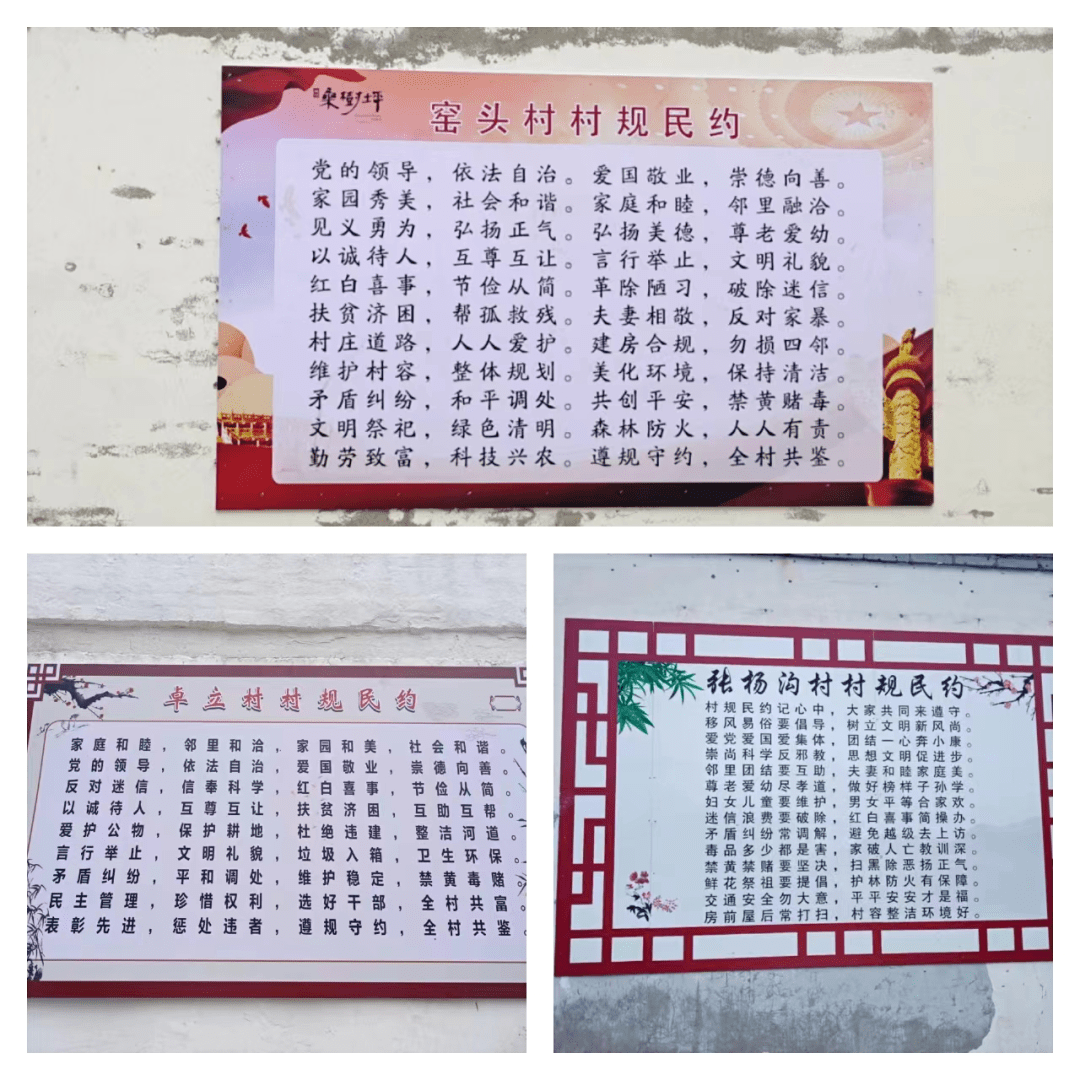 桑树坪
窑头村村规民约
党的领导，依法自治。爱国敬业，崇德向善。
家园秀美，社会和谐。家庭和睦，邻里融洽。
见义勇为，弘扬正气。弘扬美德，尊老爱幼。
以诚待人，互尊互让。言行举止，文明礼貌。
红白喜事，节俭从简。革除陋习，破除迷信。
扶贫济困，帮孤救残。夫妻相敬，反对家暴。
村庄道路，人人爱护。建房合规，勿损四邻。
维护村容，整体规划。美化环境，保持清洁。
矛盾纠纷，和平调处。共创平安，禁黄赌毒。
文明祭祀，绿色清明。森林防火，人人有责。
勤劳致富，科技兴农。遵规守约，全村共鉴。
卓立村村规民约
家庭和睦，邻里和洽，家园和美，社会和谐。
党的领导，依法自治，爱国敬业，崇德向善。
反对迷信，信奉科学，红白喜事，节俭从简。
以诚待人，互尊互让，扶贫济困，互助互帮。
爱护公物，保护耕地，杜绝违建，整洁河道。
言行举止，文明礼貌，垃圾入箱，卫生环保。
矛盾纠纷，平和调处，维护稳定，禁黄毒赌。
民主管理，珍惜权利，选好干部，全村共富。
表彰先进，惩处违者，遵规守约，全村共鉴。
张杨沟村村规民约
村规民约记心中，大家共同来遵守。
移风易俗要倡导，树立文明新风尚。
爱党爱国爱集体，团结一心奔小康。
崇尚科学反邪教，思想文明促进步。
邻里团结要互助，夫妻和睦家庭美。
尊老爱幼尽孝道，做好榜样子孙学。
妇女儿童要维护，男女平等合家欢。
迷信浪费要破除，红白喜事简操办。
矛盾纠纷常调解，避免越级去上访。
毒品多少都是害，家破人亡教训深。
禁黄禁赌要坚决，扫黑除恶扬正气。
鲜花祭祖要提倡，护林防火有保障。
交通安全勿大意，平平安安才是福。
房前屋后常打扫，村容整洁环境好。